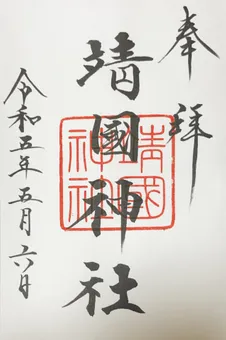 奉拝
靖國神社
靖國
神社
令和五年五月六日